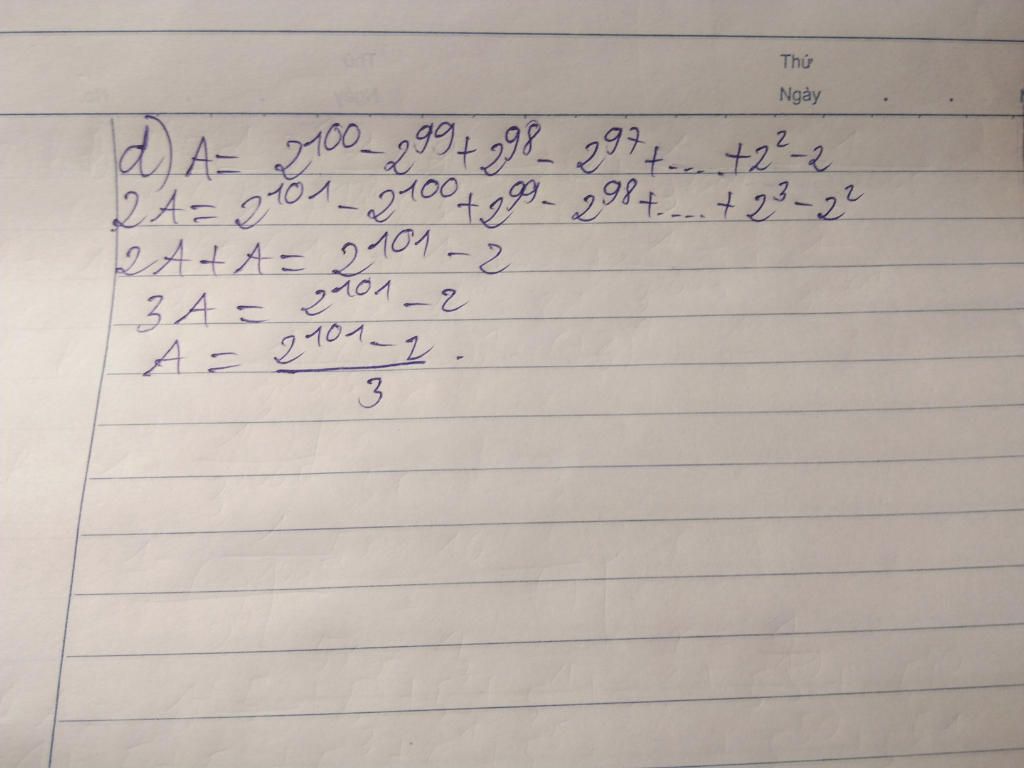 Thứ
Ngày . .
d) A = 2^100 - 2^99 + 2^98 - 2^97 + .... + 2^2 - 2
2A = 2^101 - 2^100 + 2^99 - 2^98 + .... + 2^3 - 2^2
2A + A = 2^101 - 2
3A = 2^101 - 2
A = (2^101 - 2)/3 .